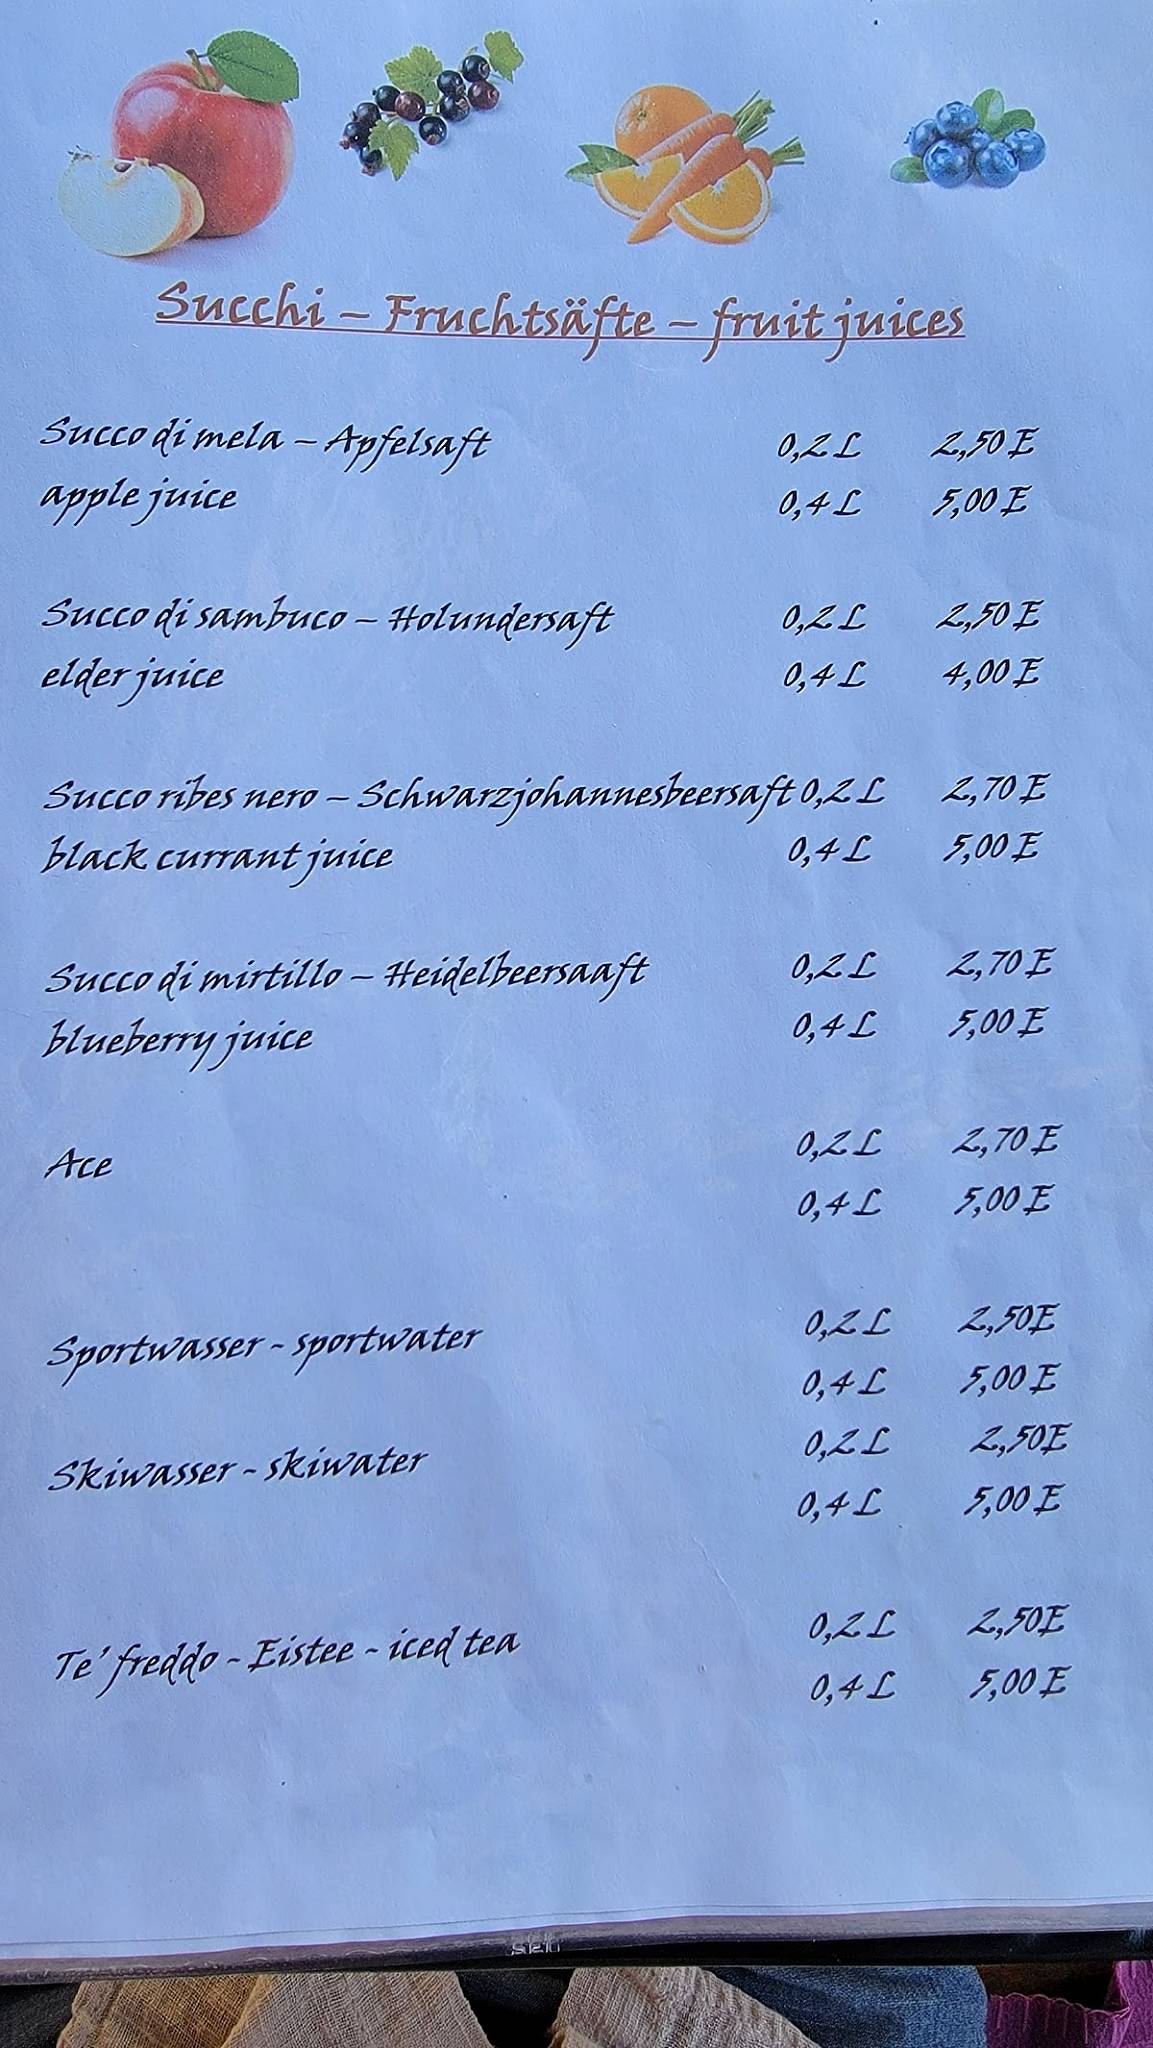 Succhi – Fruchtsäfte – fruit juices
Succo di mela – Apfelsaft 0,2 L 2,50 E
apple juice 0,4 L 5,00 E
Succo di sambuco – Holundersaft 0,2 L 2,50 E
elder juice 0,4 L 4,00 E
Succo ribes nero – Schwarzjohannesbeersaft 0,2 L 2,70 E
black currant juice 0,4 L 5,00 E
Succo di mirtillo – Heidelbeersaaft 0,2 L 2,70 E
blueberry juice 0,4 L 5,00 E
Ace 0,2 L 2,70 E
0,4 L 5,00 E
Sportwasser - sportwater 0,2 L 2,50E
0,4 L 5,00 E
Skiwasser - skiwater 0,2 L 2,50E
0,4 L 5,00 E
Te' freddo - Eistee - iced tea 0,2 L 2,50E
0,4 L 5,00 E